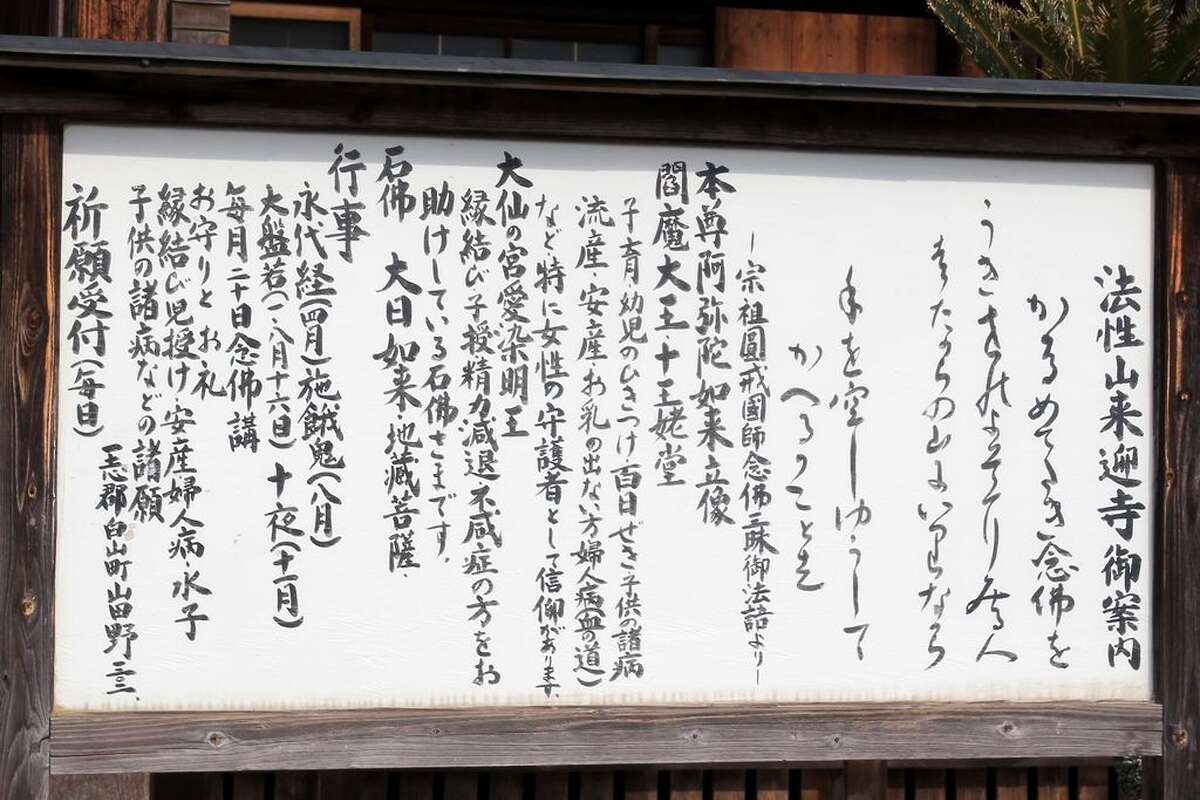 法性山来迎寺御案内
かゝるめでたき念佛を
うきまれのよにてりみ人
はたからの山にいりながら
手を空しゆうして
かへるのことき
―宗祖圓戒國師念佛三昧御法語より―
本尊阿弥陀如来立像
閻魔大王・十王姥堂
子育・幼児のひきつけ百日ぜき・子供の諸病
流産・安産・お乳の出ない方婦人病(血の道)
など特に女性の守護者として信仰があります
大仙の宮愛染明王
縁結び・子授精力減退・不感症の方をお
助けしている石佛さまです。
石佛 大日如来・地蔵菩薩・
行事
永代経(四月)施餓鬼(八月)
大盤若(一・八月十六日)十夜(十一月)
毎月二十日念佛講
お守りとお礼
縁結び児授け・安産婦人病・水子
子供の諸病などの諸願
祈願受付(毎日)
一志郡白山町山田野三三一、